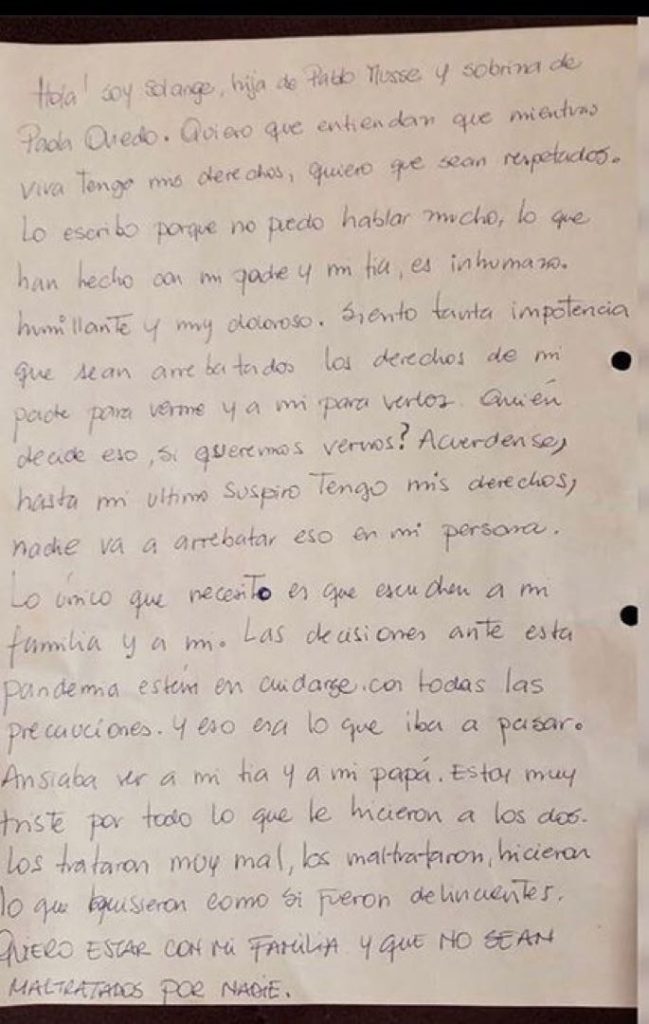 Hola! soy Solange, hija de Pablo Musse y sobrina de
Paola Oviedo. Quiero que entiendan que mientras
viva Tengo mis derechos, quiero que sean respetados.
Lo escribo porque no puedo hablar mucho, lo que
han hecho con mi padre y mi tia, es inhumano.
humillante y muy doloroso. Siento tanta impotencia
que sean arrebatados los derechos de mi
padre para verme y a mi para verlos. Quién
decide eso, si queremos vernos? Acuerdense,
hasta mi ultimo suspiro Tengo mis derechos,
nadie va a arrebatar eso en mi persona.
Lo único que necesito es que escuchen a mi
familia y a mi. Las decisiones ante esta
pandemia estém en cuidarse con todas las
precauciones. y eso era lo que iba a pasar.
Ansiaba ver a mi tia y a mi papá. Estoy muy
triste por todo lo que le hicieron a los dos.
Los trataron muy mal, los maltrataron, hicieron
lo que quisieron como si fueron delincuentes.
QUIERO ESTAR CON MI FAMILIA Y QUE NO SEAN
MALTRATADOS POR NADIE.